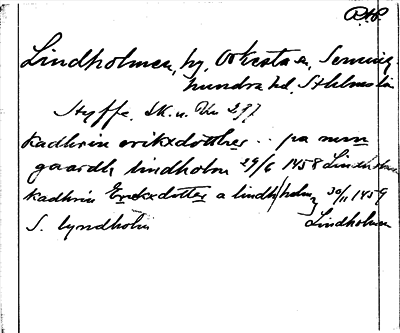 Lindholmen, by, Orkesta sn, Seming-
hundra hd, Sthlms län
Styffe, SK. u. Un 297
kadhrin erikxdotther .. pa men
gaardh lindholm 29/6 1458 Lindholm
kadhrin Erekxdotter a lindh/holm, 30/11 1459
S. lyndholm Lindholm